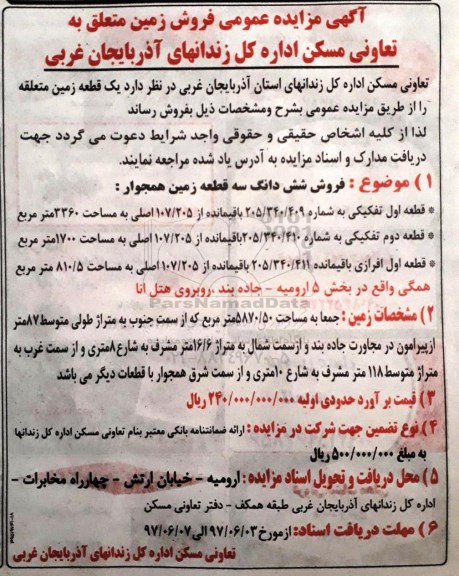 آگهی مزایده عمومی فروش زمین متعلق به
تعاونی مسکن اداره کل زندانهای آذربایجان غربی
تعاونی مسکن اداره کل زندانهای استان آذربایجان غربی در نظر دارد یک قطعه زمین متعلقه
را از طریق مزایده عمومی بشرح ومشخصات ذیل بفروش رساند
لذا از کلیه اشخاص حقیقی و حقوقی واجد شرایط دعوت می گردد جهت
دریافت مدارک و اسناد مزایده به آدرس یاد شده مراجعه نمایند.
۱ ) موضوع : فروش شش دانگ سه قطعه زمین همجوار :
* قطعه اول تفکیکی به شماره ۲۰۵/۳۴۰/۴۰۹ باقیمانده از ۱۰۷/۲۰۵ اصلی به مساحت ۳۳۶۰متر مربع
* قطعه دوم تفکیکی به شماره ۲۰۵/۳۴۰/۴۱۰باقیمانده از ۱۰۷/۲۰۵ اصلی به مساحت ۱۷۰۰متر مربع
* قطعه اول افرازی باقیمانده ۲۰۵/۳۴۰/۴۱۱ باقیمانده از ۱۰۷/۲۰۵ اصلی به مساحت ۸۱۰/۵ متر مربع
همگی واقع در بخش ۵ ارومیه - جاده بند .روبروی هتل آنا
ParsNamadData
۲) مشخصات زمین : جمعا به مساحت ۵۸۷۰/۵۰متر مربع که از سمت جنوب به متراژ طولی متوسط۸۷متر
ازپیرامون در مجاورت جاده بند و ازسمت شمال به متراژ ۱۶/۶متر مشرف به شارع۸متری و از سمت غرب به
متراژ متوسط ۱۱۸ متر مشرف به شارع ۱۰متری و از سمت شرق همجوار با قطعات دیگر می باشد
۳) قیمت بر آورد حدودی اولیه ۲۴۰/۰۰۰/۰۰۰/۰۰۰ ریال
۴) نوع تضمین جهت شرکت در مزایده : ارائه ضمانتنامه بانکی معتبر بنام تعاونی مسکن اداره کل زندانها
به مبلغ ۵۰۰/۰۰۰/۰۰۰ ریال
۵) محل دریافت و تحویل اسناد مزایده : ارومیه - خیابان ارتش - چهارراه مخابرات -
اداره کل زندانهای آذربایجان غربی طبقه همکف - دفتر تعاونی مسکن
۶) مهلت دریافت اسناد: ازمورخ ۹۷/۰۶/۰۳ الی ۹۷/۰۶/۰۷
تعاونی مسکن اداره کل زندانهای آذربایجان غربی